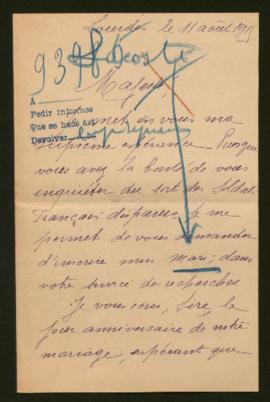 Lourdes le 11 août 191
9398
Majesté,
A
Pedir informes
Que se hace así
Devolver
met en vous ma
suprême espérance Puisque
vous avez la bonté de vous
inquiéter du sort des Soldats
Français disparus, je me
permet de vous demander
d'inscrire mon Mari, dans
votre service de recherches
Je vous écris, Sire, le
jour anniversaire de notre
mariage, espérant que